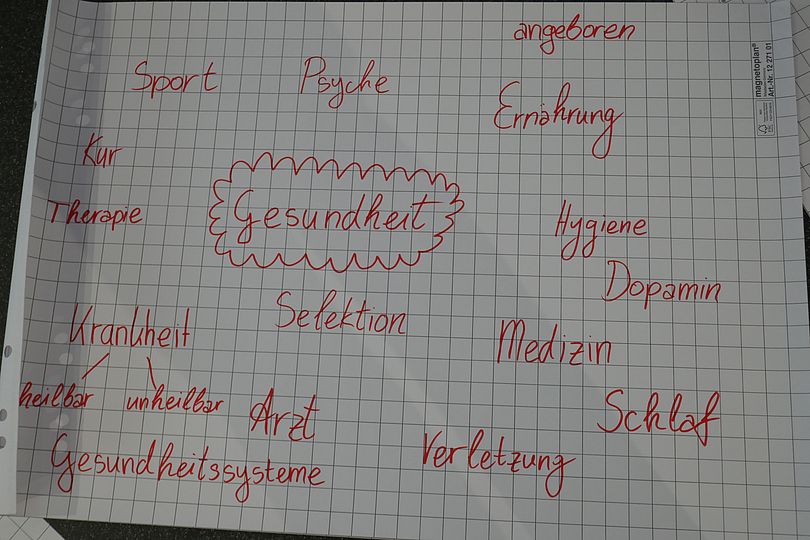 angeboren
Sport Psyche
Ernährung
magnetoplan®
Art.-Nr. 12 271 01
Kur
Therapie
Gesundheit
Hygiene
Dopamin
Selektion
Krankheit
Medizin
heilbar unheilbar
Arzt
Schlaf
Verletzung
Gesundheitssysteme